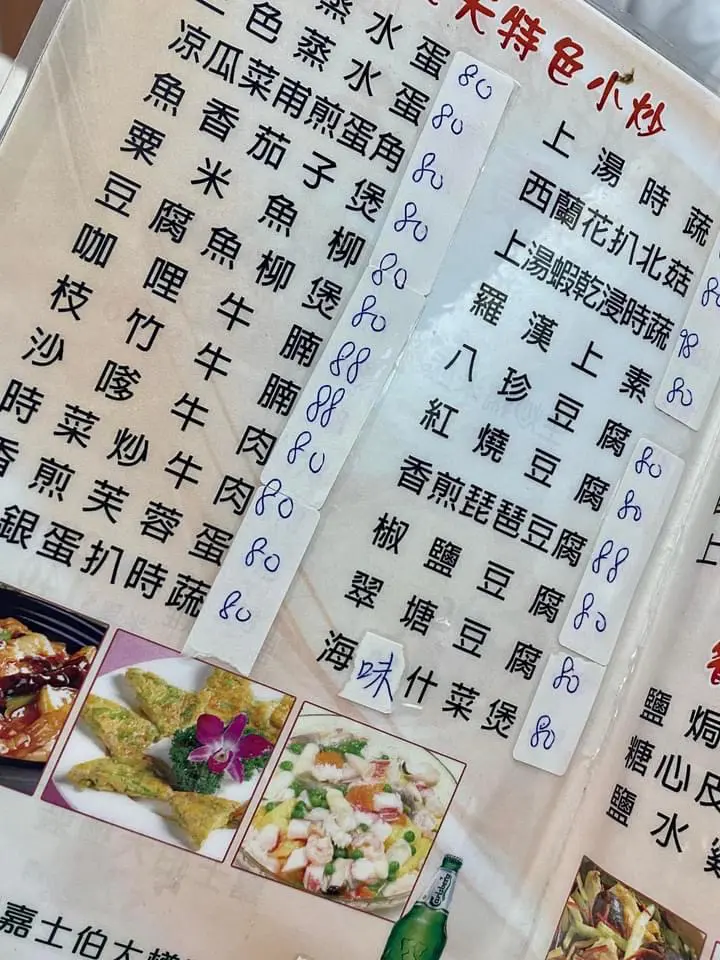 蒸水蛋 80
色蒸水蛋 80
涼瓜菜甫煎蛋角 80
魚香茄子煲 80
粟米魚柳 80
豆腐魚柳煲 80
咖哩牛腩 88
枝竹牛腩 88
沙嗲牛肉 80
時菜炒牛肉 80
香煎芙蓉蛋 80
銀蛋扒時蔬 80
特色小炒
上湯時蔬
西蘭花扒北菇 80
上湯蝦乾浸時蔬 98
羅漢上素 80
八珍豆腐 80
紅燒豆腐 80
香煎琵琶豆腐 88
椒鹽豆腐 80
翠塘豆腐 80
海味什菜煲 80
上
鹽焗
糖心皮
鹽水
嘉士伯大
Carlsberg